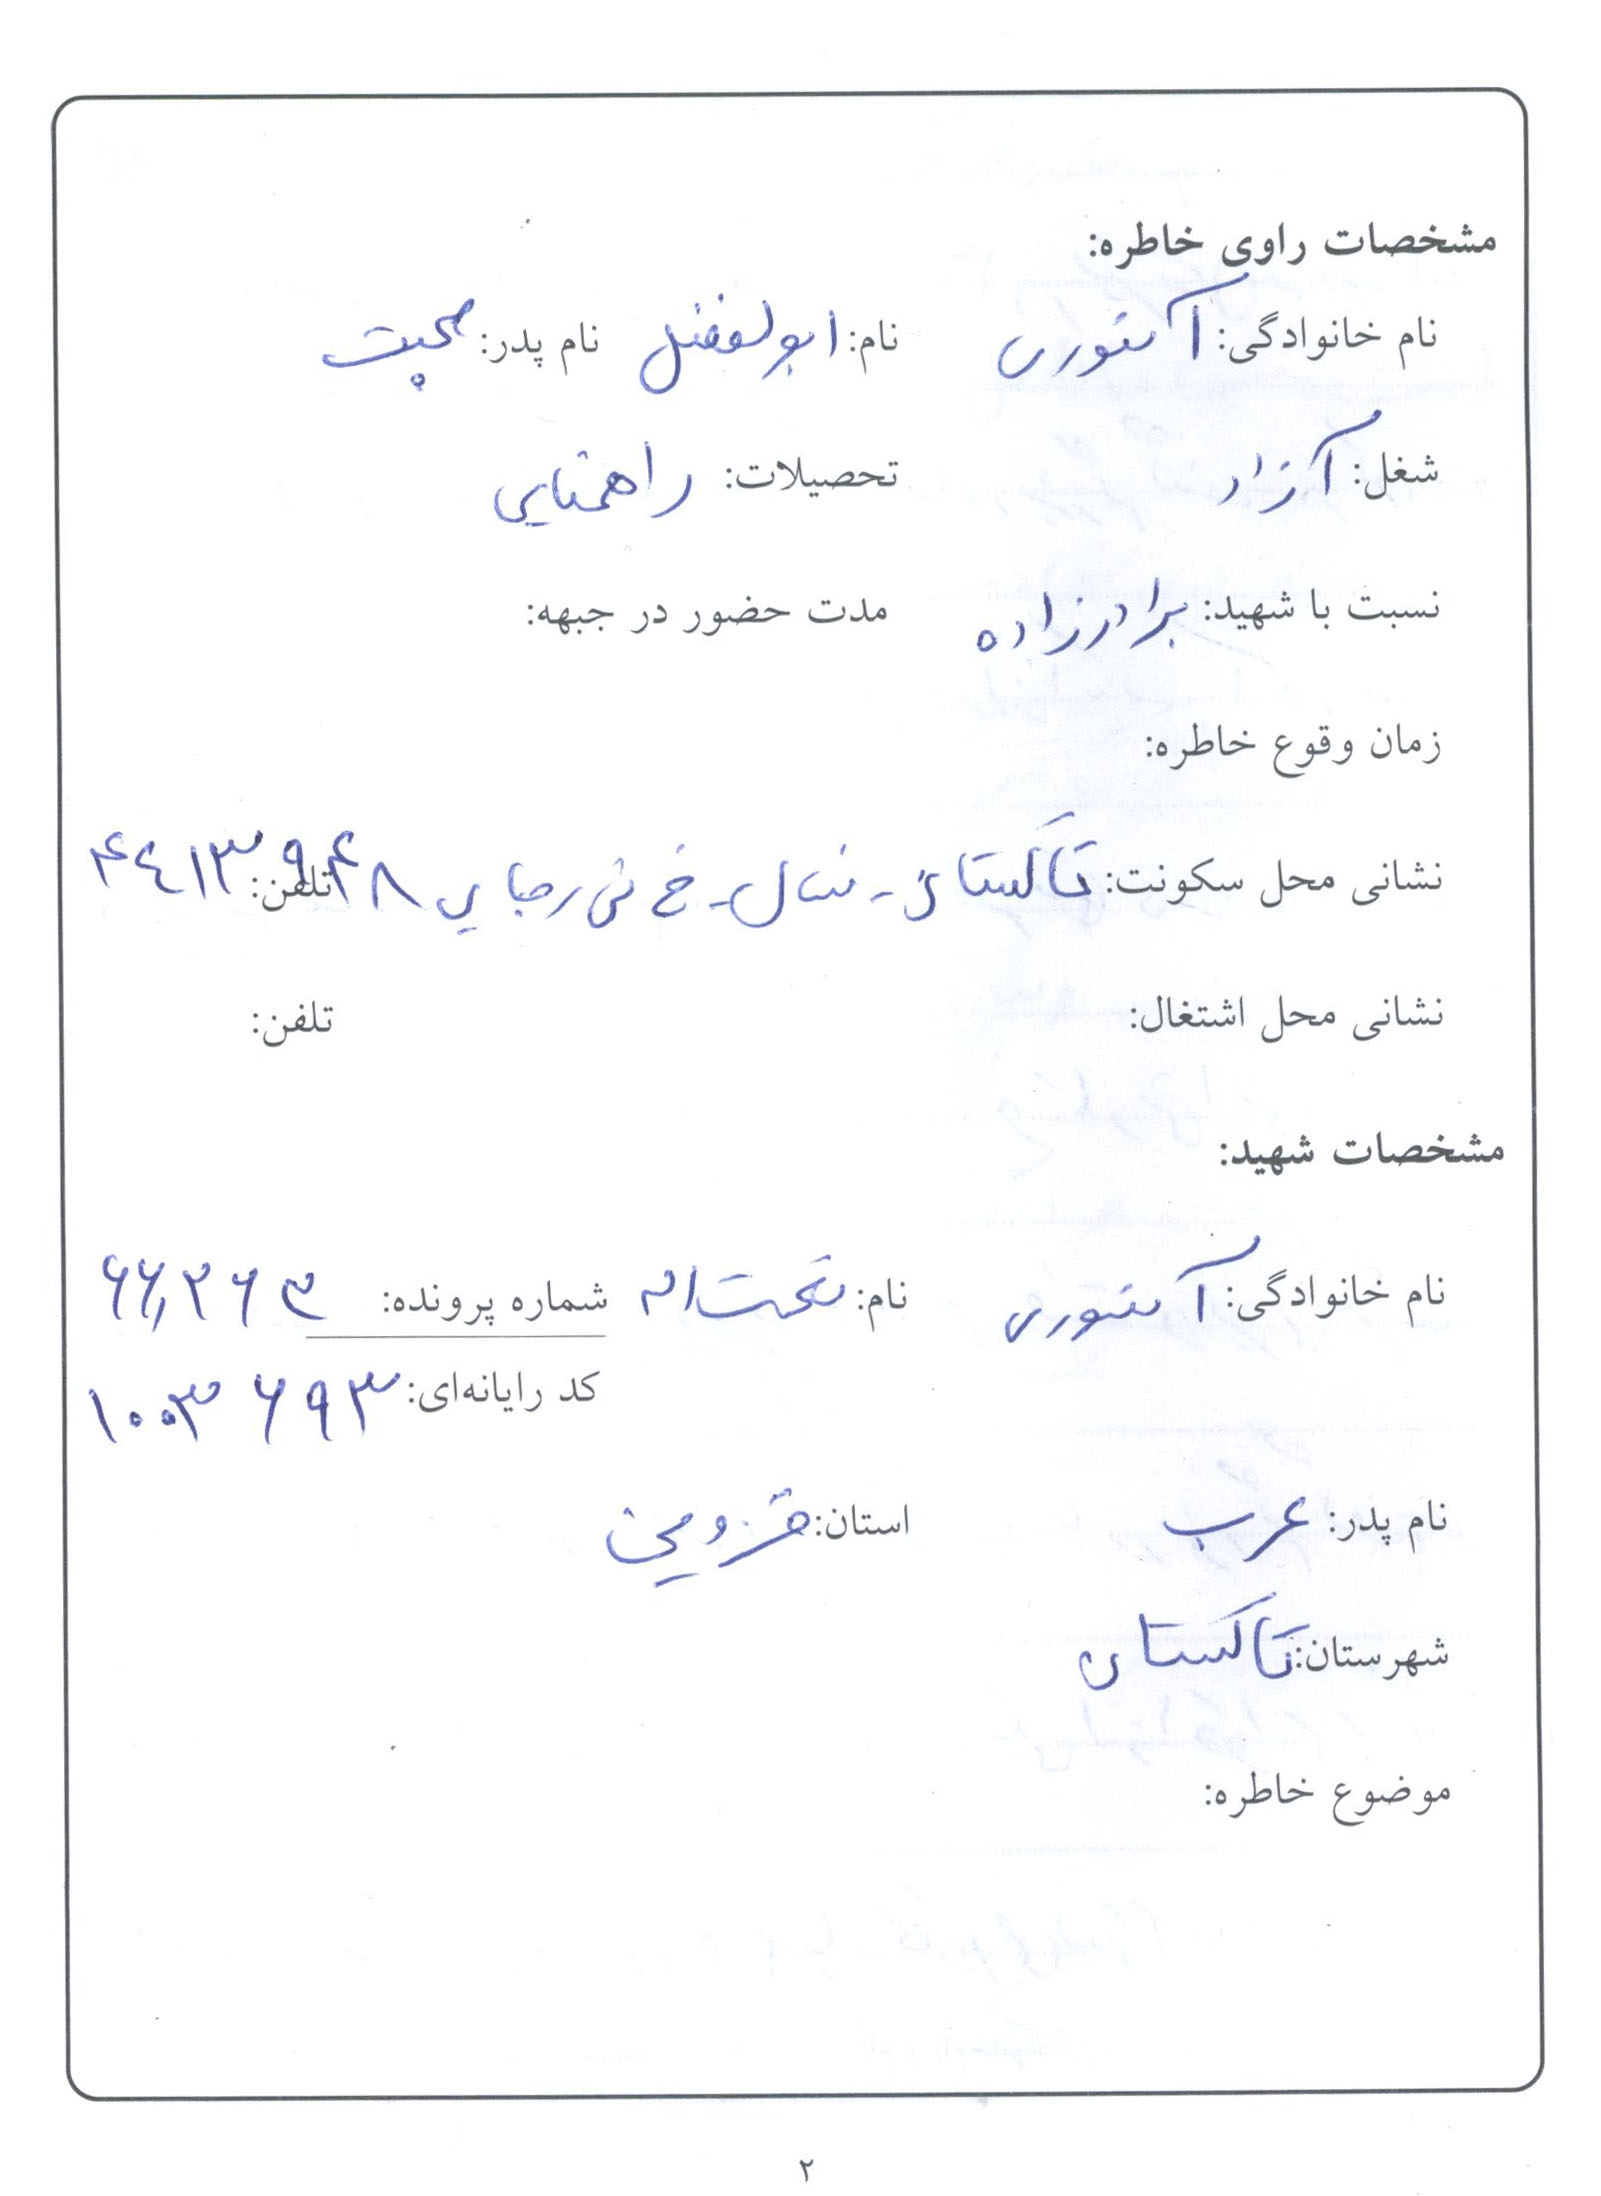 مشخصات راوی خاطره:
نام خانوادگی: آشوری نام: ابوالفضل نام پدر: محبت
شغل: آزاد تحصیلات: راهنمایی
نسبت با شهید: برادرزاده مدت حضور در جبهه:
زمان وقوع خاطره:
نشانی محل سکونت: تاکستان - - خ رجایی ۴۸ تلفن:
نشانی محل اشتغال: تلفن:
مشخصات شهید:
نام خانوادگی: آشوری نام: شماره پرونده:
کد رایانه‌ای: ۱۰۰۳۶۹۳
نام پدر: عرب استان: قزوین
شهرستان: تاکستان
موضوع خاطره:
۲